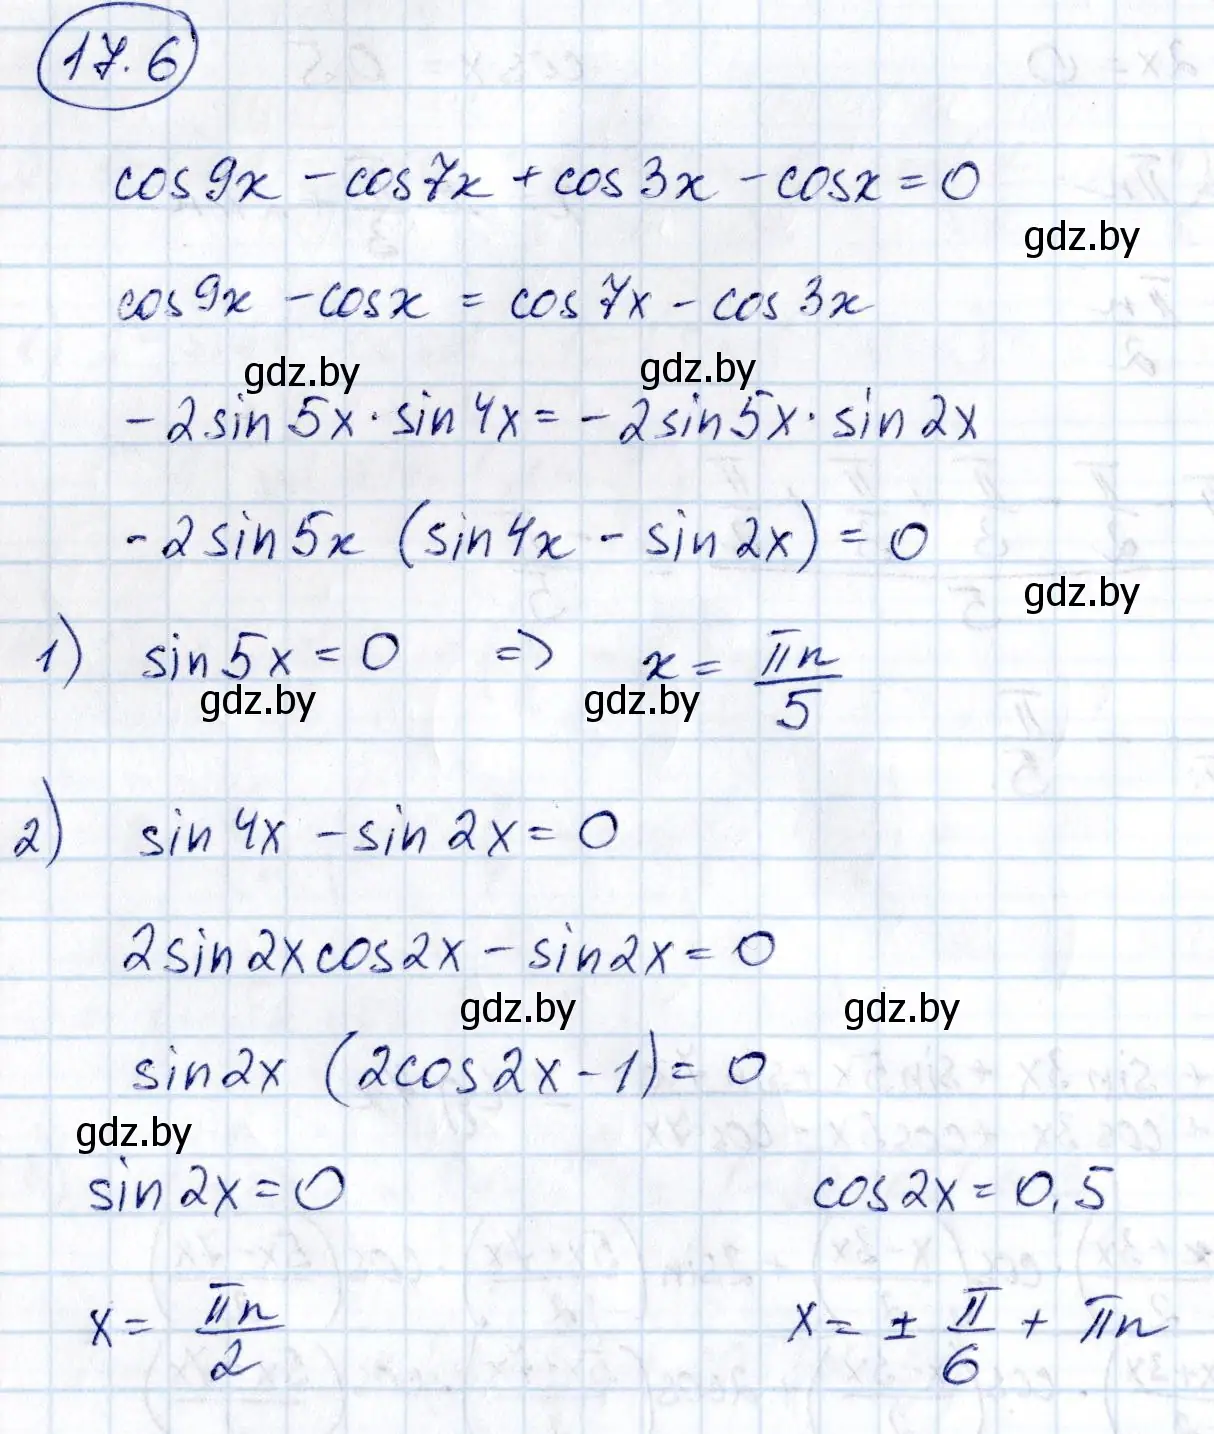 17.6
cos9x - cos7x + cos3x - cosx = 0
gdz.by
cos9x - cosx = cos7x - cos3x
gdz.by gdz.by
-2sin5x·sin4x = -2sin5x·sin2x
-2sin5x (sin4x - sin2x) = 0
gdz.by
1) sin5x = 0 => x = πn/5
gdz.by gdz.by
2) sin4x - sin2x = 0
2sin2xcos2x - sin2x = 0
gdz.by gdz.by
sin2x (2cos2x - 1) = 0
gdz.by
sin2x = 0 cos2x = 0,5
x = πn/2 x = ± π/6 + πn